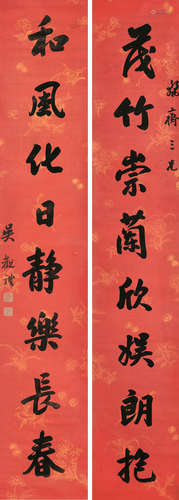 茂竹崇蘭欣娛朗抱
齋三兄
和風化日靜樂長春
吳觀禮